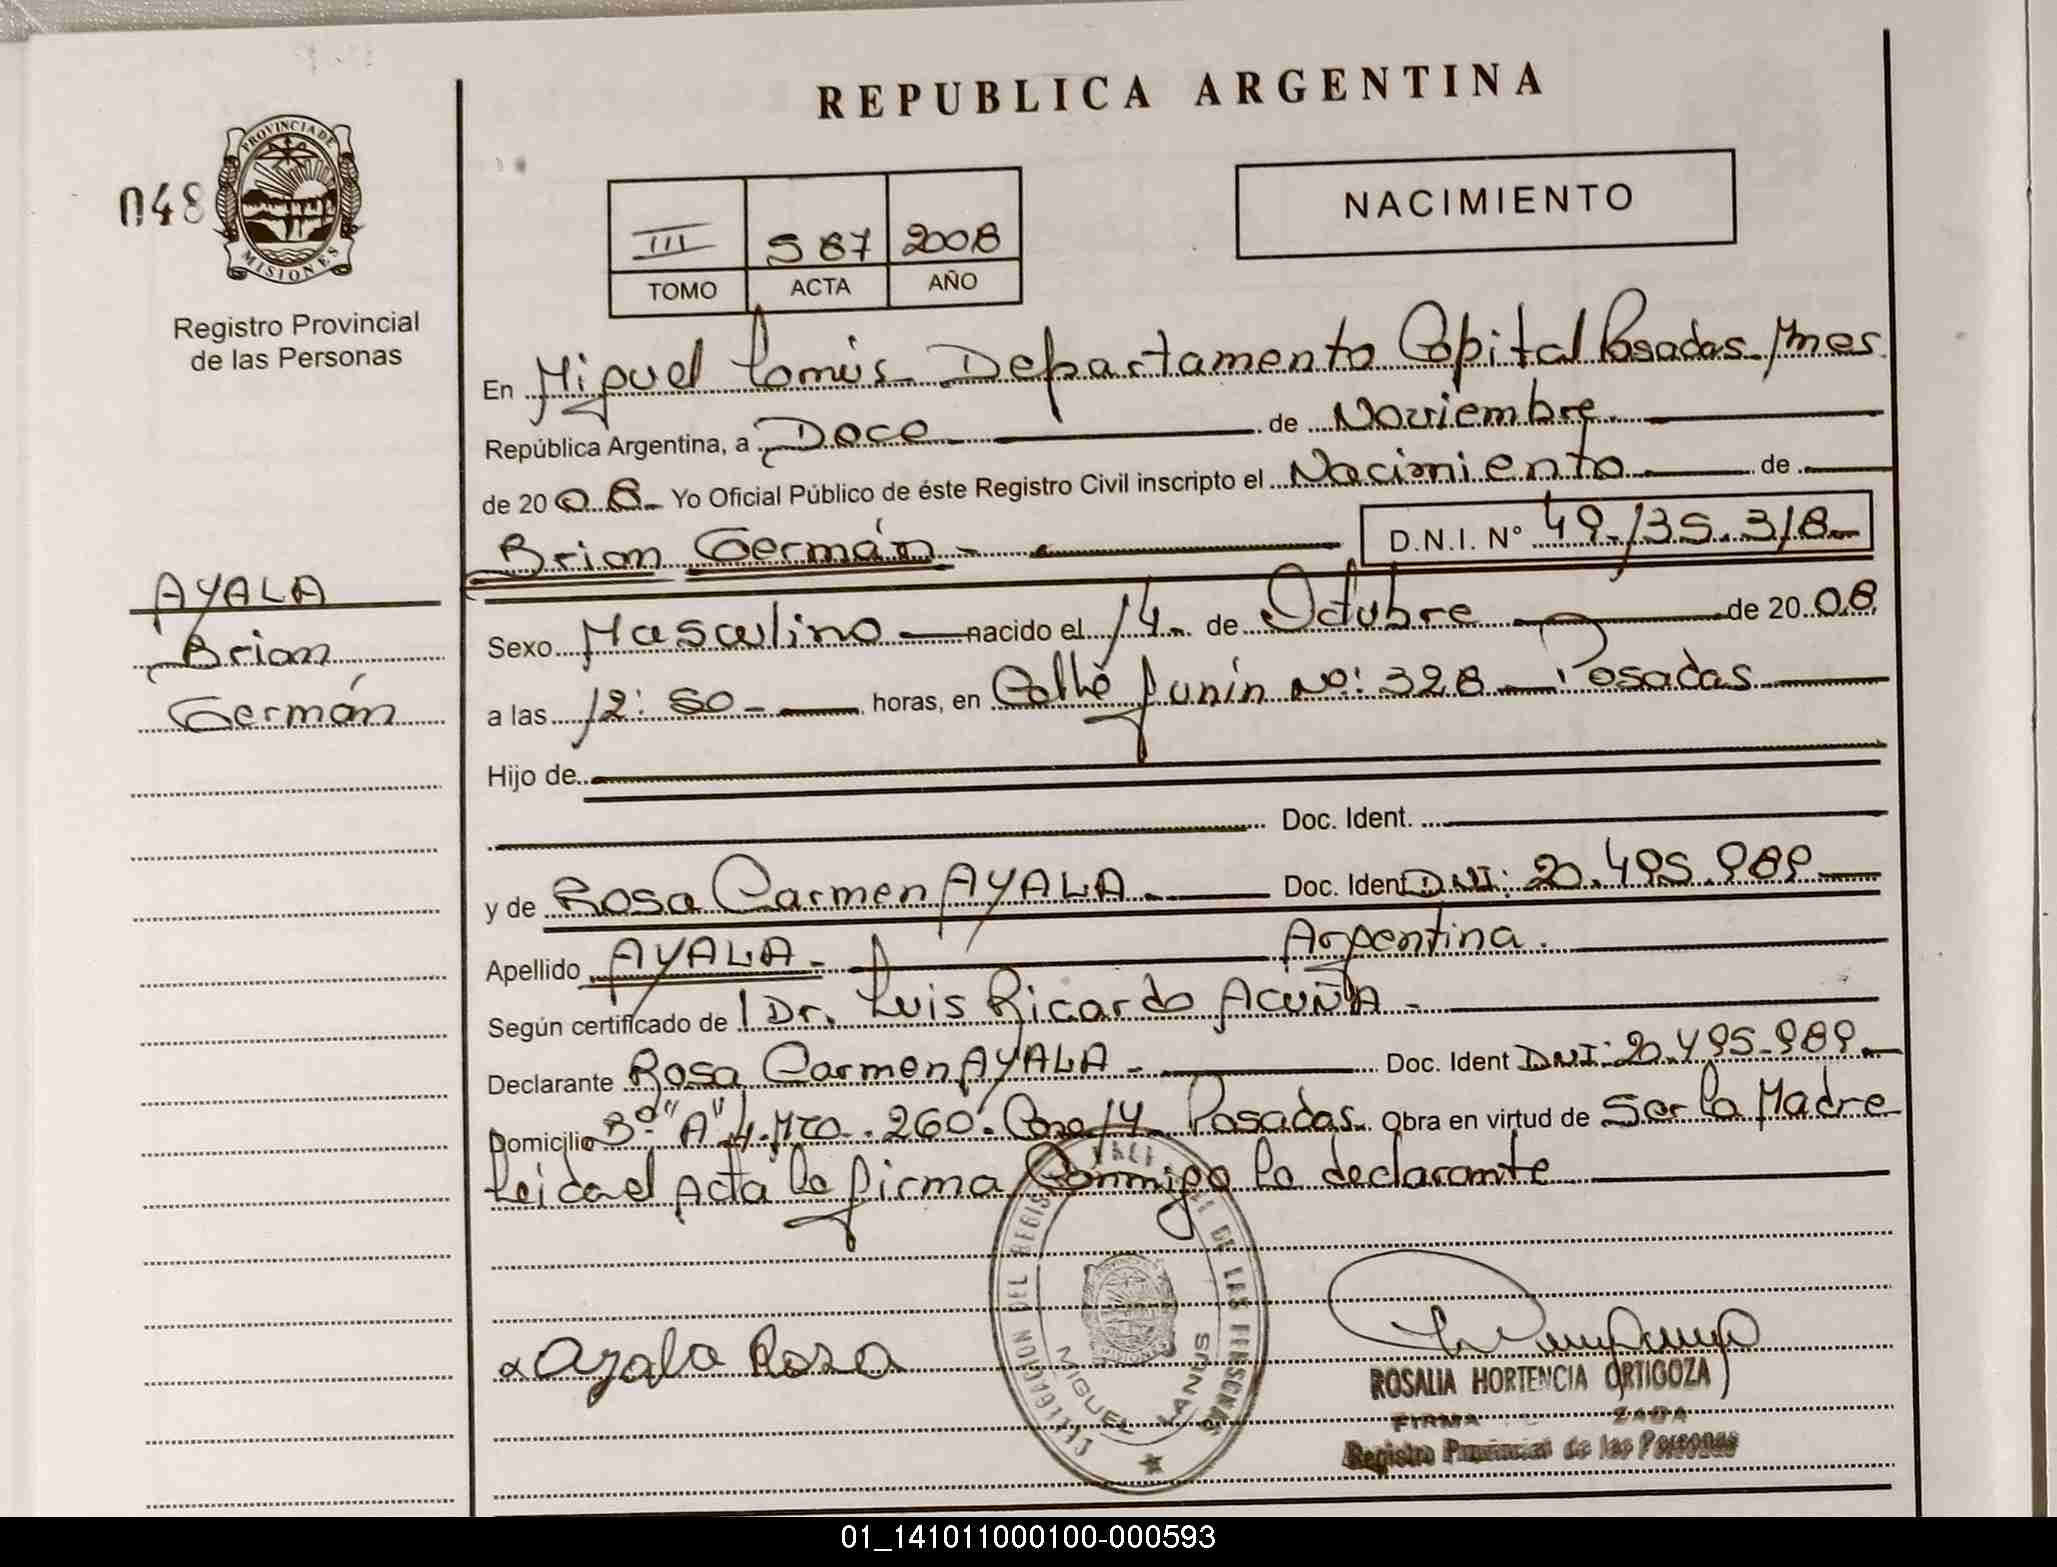 REPUBLICA ARGENTINA
048
PROVINCIA DE
MISIONES
Registro Provincial
de las Personas
III 587 2008
TOMO ACTA AÑO
NACIMIENTO
En Miguel Lanús Departamento Capital Posadas Mnes
República Argentina, a Doce de Noviembre
de 2008 Yo Oficial Público de éste Registro Civil inscripto el Nacimiento de
Brian Germán D.N.I. Nº 49.135.318
AYALA
Brian
Germán
Sexo Masculino nacido el 14 de Octubre de 2008
a las 12:50 horas, en Calle Junín No: 328 Posadas
Hijo de
Doc. Ident.
y de Rosa Carmen AYALA Doc. Ident DNI: 20.495.989
Apellido AYALA Argentina.
Según certificado de Dr. Luis Ricardo ACUÑA
Declarante Rosa Carmen AYALA Doc. Ident DNI: 20.495.989
Domicilio Bº "A" 4. 260. Casa 14 Posadas. Obra en virtud de Ser la Madre
Leida el Acta la firma Conmigo la declarante
Ayala Rosa
MIGUEL LANUS
DE LAS PERSONAS
ROSALIA HORTENCIA ORTIGOZA
FIRMA
Registro Provincial de las Personas
01_141011000100-000593